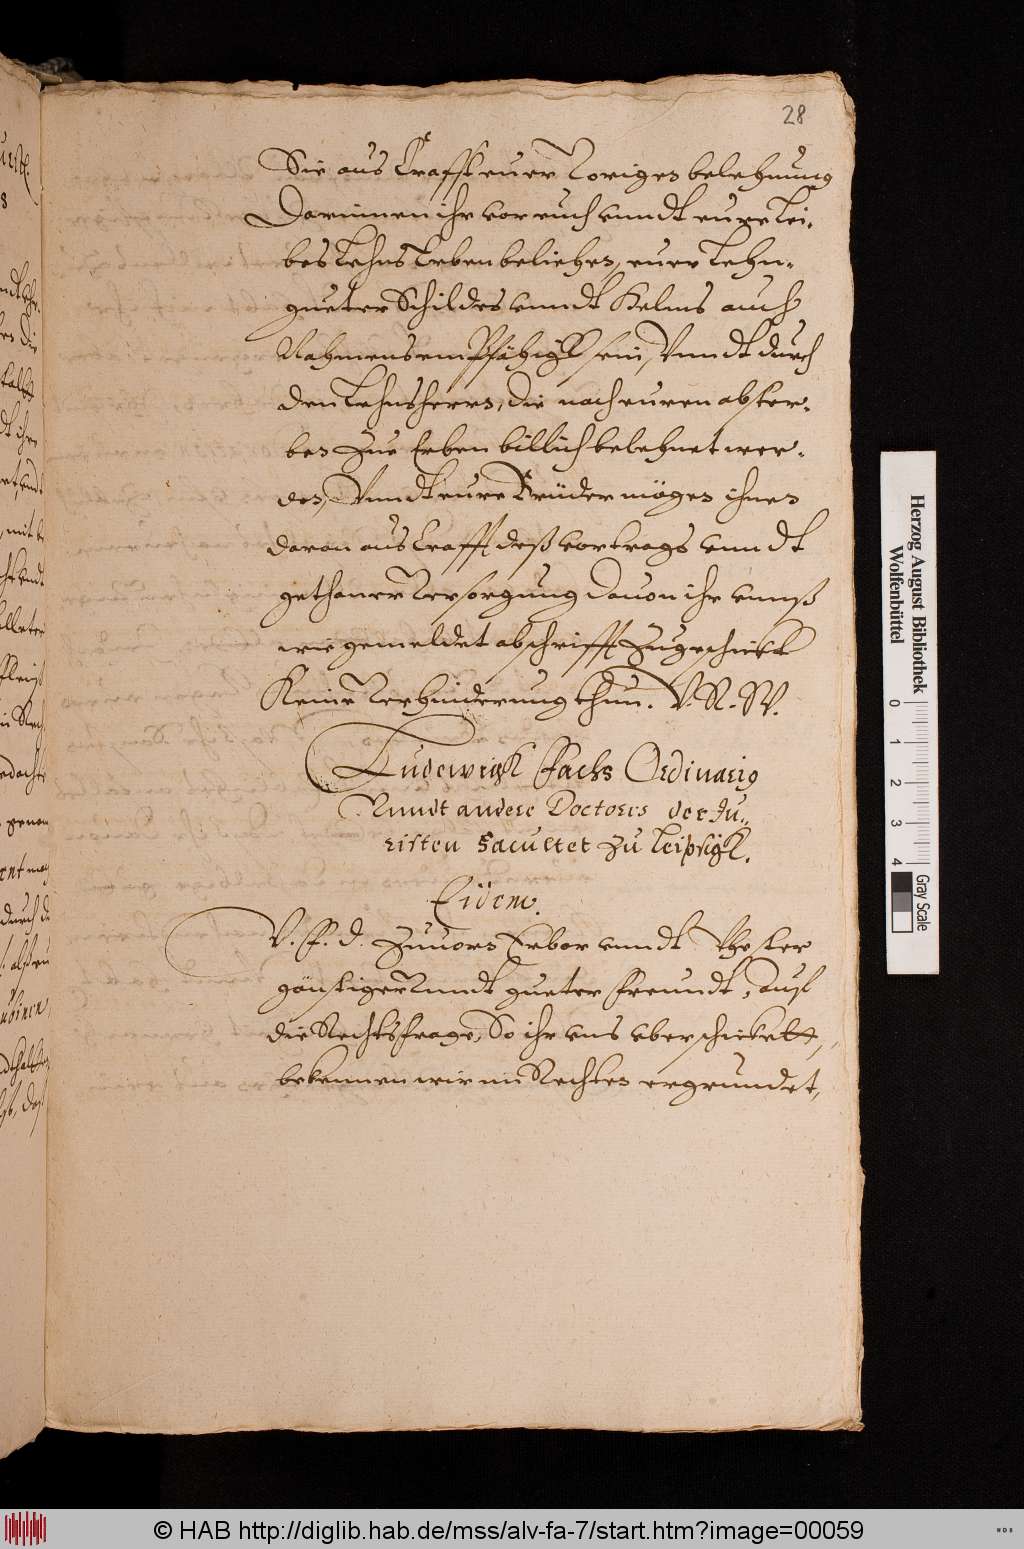 28
Sie aus Crafft euer Vorigen belehnung
Darinnen ihr vor euch vnndt eure Lei-
bes Lehns Erben beliehen, euer Lehn-
gueter Schildes vnndt Helms auch
Nahmens empfähigk sein, Vnndt durch
den Lehnsherrn, die nach euren abster-
ben zue Erben billich belehnet wer-
den, Vnndt eure Brüder mögen ihnen
daran aus Crafft deß vortrags vnndt
gethaner Versorgung dauon ihr vnnß
wie gemeldet abschrifft zugeschickt
Keine Verhinderung thun. V. R. W.
Ludewigk Fachs Ordinarig
Vnndt andere Doctores der Ju-
risten Facultet zu Leipsigk.
Eidem.
V. F. d. Zuuorn Erbar vnndt Vhester
günstiger Vnndt gueter Freundt, auf
die Rechtsfrage, So ihr vns vberschicket,
bekennen wir im Rechten ergrundet,
mit
Herzog August Bibliothek
Wolfenbüttel
0 1 2 3 4
Gray Scale
© HAB http://diglib.hab.de/mss/alv-fa-7/start.htm?image=00059